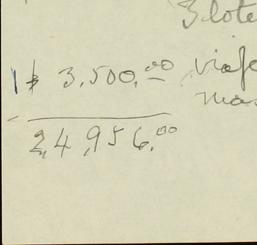 3 lote
1$ 3,500.00 viaje
24,956.00